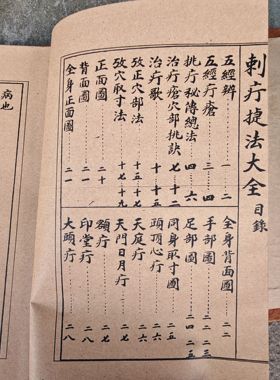 刺疔捷法大全 目錄
五經辨 一 二
五經疔瘡 三 四
挑疔秘傳總法 四 六
治疔瘡穴部挑訣 七 十二
治疔歌 十 十三
攷正穴部法 十五 十七
攷穴取寸法 十七 十九
正面圖 二十
背面圖 二一
全身正面圖 二一
全身背面圖 二二
手部圖 二二 二三
足部圖 二四 二五
同身取寸圖 二五
頭頂心疔 二六
天庭疔 二六
天門日月疔 二七
額疔 二七
印堂疔 二八
大頭疔 二八
病也